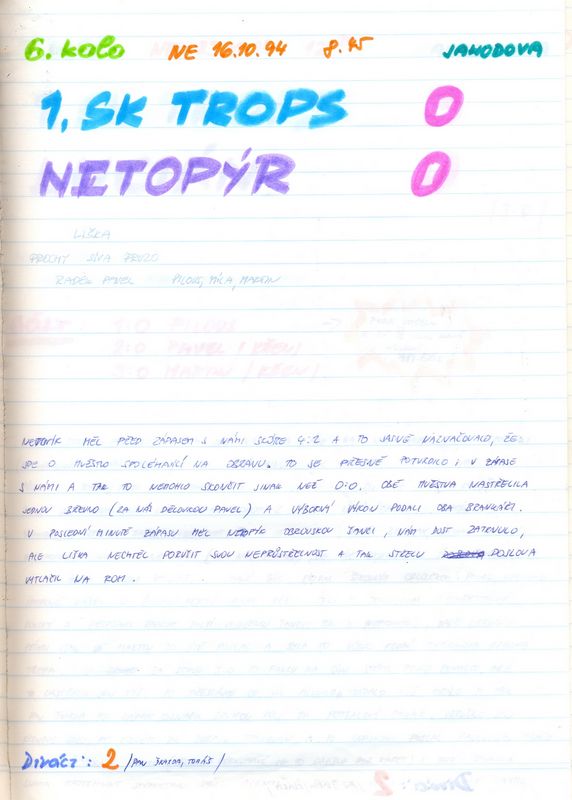 6. kolo NE 16.10.94 8.45 JAHODOVA
1. SK TROPS 0
NETOPÝR 0
LIŠKA
PRCHY SÍVA
RADEK PAVEL PILOUS, MÍLA, MARTIN
NETOPÝR MĚL PŘED ZÁPASEM S NÁMI SKÓRE 4:2 A TO JASNĚ NAZNAČOVALO, ŽE
JDE O MUŽSTVO SPOLÉHAJÍCÍ NA OBRANU. TO SE PŘESNĚ POTVRDILO I V ZÁPASE
S NÁMI A TAK TO NEMOHLO SKONČIT JINAK NEŽ 0:0. OBĚ MUŽSTVA NASTŘELILA
JEDNOU BŘEVNO (ZA NÁS DĚLOVKOU PAVEL) A VÝBORNÝ VÝKON PODALI OBA BRANKÁŘI.
V POSLEDNÍ MINUTĚ ZÁPASU MĚL NETOPÝR OBROVSKOU ŠANCI, NÁM DOST ZATRNULO,
ALE LIŠKA NECHTĚL PORUŠIT SVOU NEPRŮSTŘELNOST A TAK STŘELU DOSLOVA
VYTLAČIL NA ROH.
Diváci: 2 /PAN ŠKALDA, TOMÁŠ/